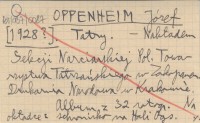 OPPENHEIM Józef
[1928?] Tatry. – Nakładem
Sekcji Narciarskiej Pol. Towa-
rzystwa Tatrzańskiego w Zakopanem
Drukarnia Narodowa w Krakowie.
Album, z 32 fotogr. Na
okładce: schronisko na Hali Gąs.